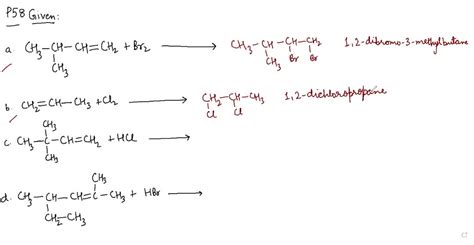 P58 Given:
a. CH3-CH-CH=CH2 + Br2 ⟶ CH3-CH-CH-CH2 1,2-dibromo-3-methylbutane
CH3 CH3 Br Br
b. CH2=CH-CH3 + Cl2 ⟶ CH2-CH-CH3 1,2-dichloropropane
Cl Cl
CH3
c. CH3-C-CH=CH2 + HCl ⟶
CH3
CH3
d. CH3-CH-CH=C-CH3 + HBr ⟶
CH2-CH3